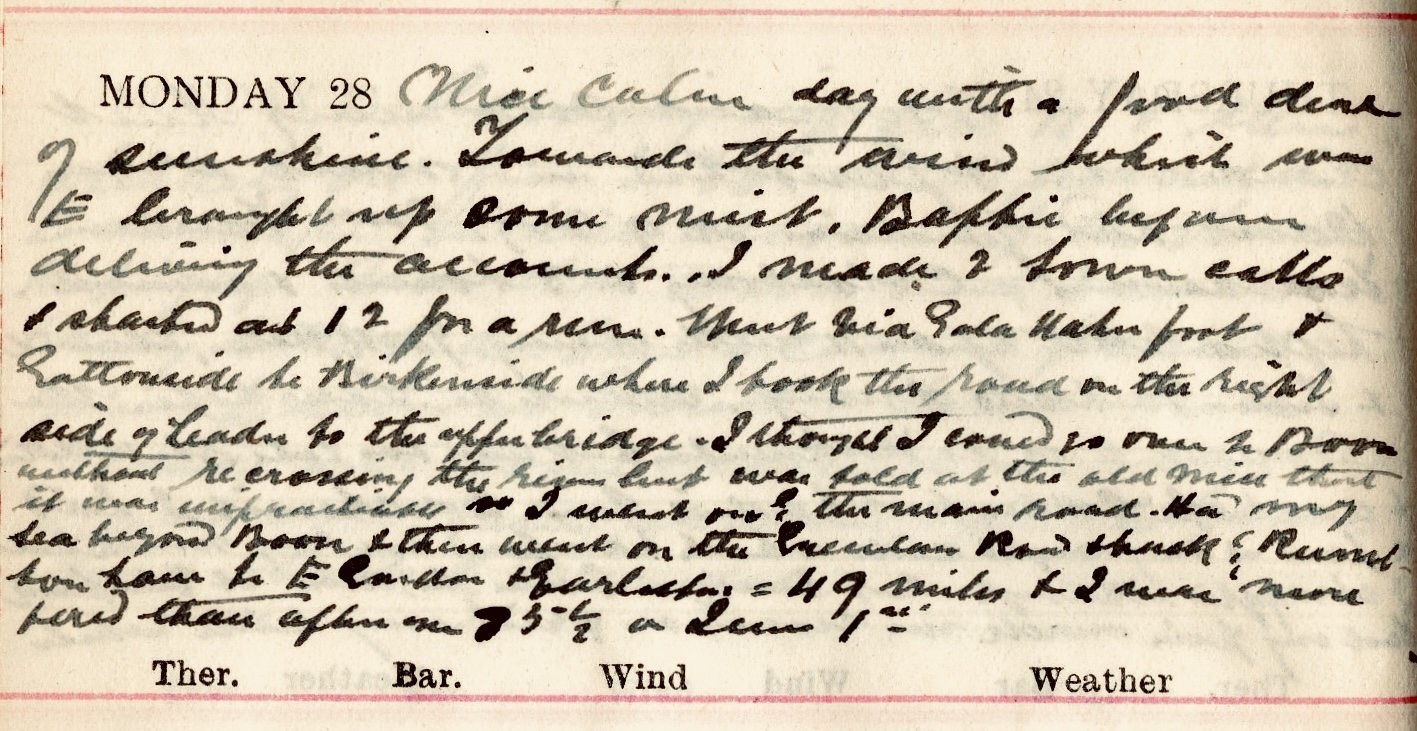 MONDAY 28 Nice Calm day with a good deal
of sunshine. Towards the wind which was
E brought up some mist. Baffie began
delivering the accounts. I made 2 town calls
& started at 12 for a run. Went via Gala foot &
Gattonside to Birkenside where I took the road on the right
side of Leader to the upper bridge. I thought I could go over to Boon
without recrossing the river but was told at the old Mill that
it was impracticable so I went on the main road. Had my
tea beyond Boon & then went on the Greenlaw Road struck
to E Gordon & Earlston. = 49 miles & I was more
tired than after on 75½ on June 1st
Ther. Bar. Wind Weather